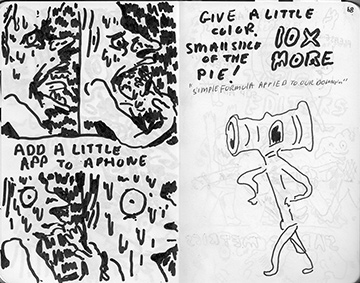 ADD A LITTLE
APP TO A PHONE
GIVE A LITTLE
COLOR,
SMALL SLICE
OF THE
PIE!
10X
MORE
"SIMPLE FORMULA APPLIED TO OUR